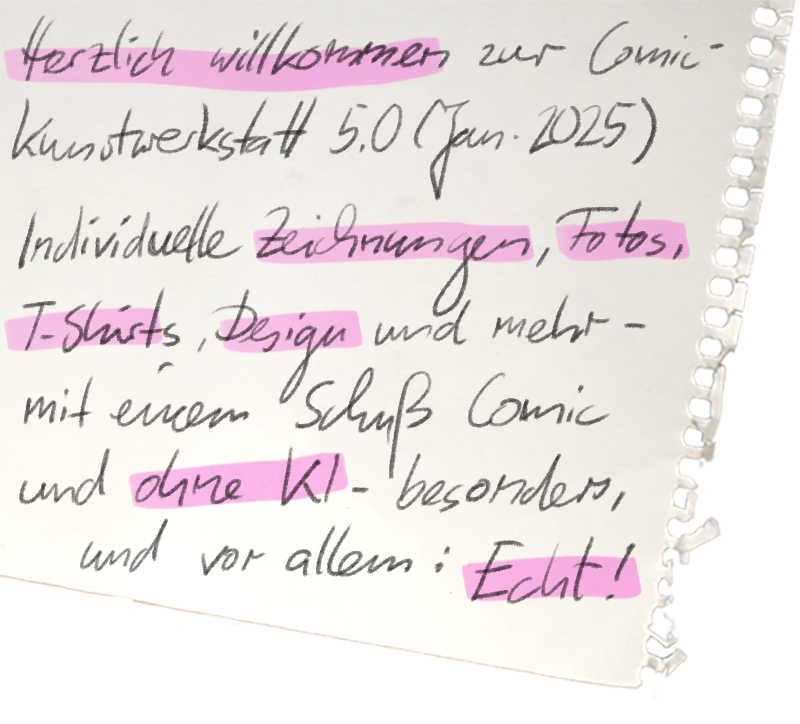 Herzlich willkommen zur Comic-
Kunstwerkstatt 5.0 (Jan. 2025)
Individuelle Zeichnungen, Fotos,
T-Shirts, Design und mehr -
mit einem Schuß Comic
und ohne KI - besonders,
und vor allem: Echt!